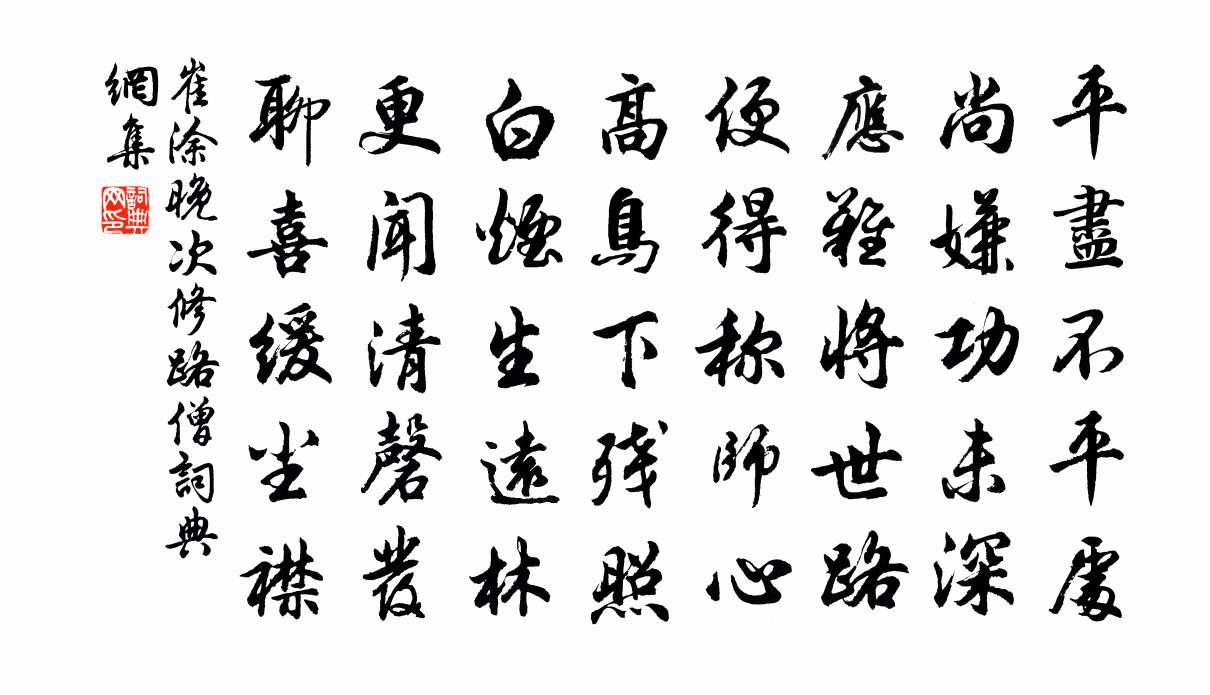 平盡不平處
尚嫌功未深
應難将世路
便得称師心
高鳥下残照
白煙生遠林
更聞清磬發
聊喜缓尘襟
崔涂晚次修路僧詞典
網集
詞典
网印